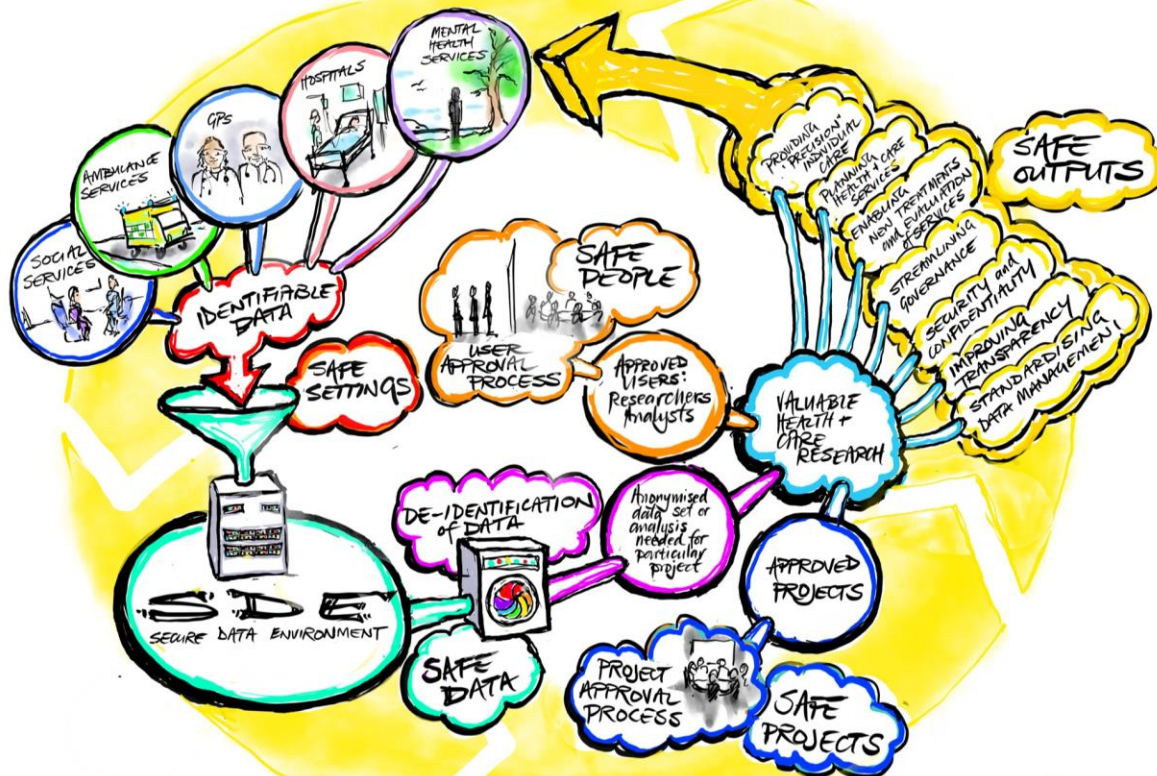 MENTAL
HEALTH
SERVICES
HOSPITALS
GPs
AMBULANCE
SERVICES
SOCIAL
SERVICES
IDENTIFIABLE
DATA
SAFE
SETTINGS
SDE
SECURE DATA ENVIRONMENT
DE-IDENTIFICATION
of DATA
SAFE
DATA
Anonymised
data set or
analysis
needed for
particular
project
SAFE
PEOPLE
USER
APPROVAL
PROCESS
APPROVED
USERS:
Researchers
Analysts
VALUABLE
HEALTH +
CARE
RESEARCH
APPROVED
PROJECTS
PROJECT
APPROVAL
PROCESS
SAFE
PROJECTS
PROVIDING
"PRECISION"
INDIVIDUAL
CARE
PLANNING
HEALTH + CARE
SERVICES
ENABLING
NEW TREATMENTS
and EVALUATION
of SERVICES
STREAMLINING
GOVERNANCE
SECURITY and
CONFIDENTIALITY
IMPROVING
TRANSPARENCY
STANDARDISING
DATA MANAGEMENT
SAFE
OUTPUTS